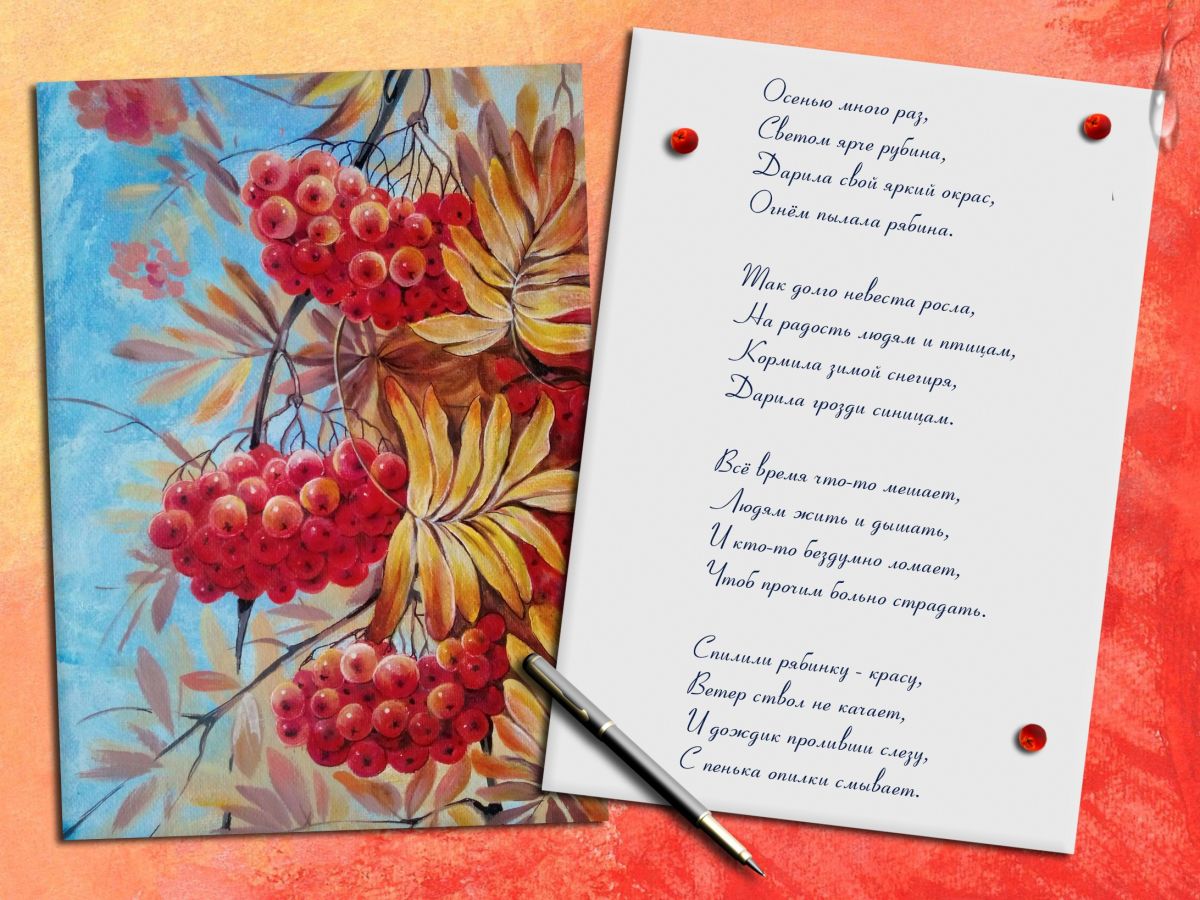 Осенью много раз,
Светом ярче рубина,
Дарила свой яркий окрас,
Огнём пылала рябина.
Так долго невеста росла,
На радость людям и птицам,
Кормила зимой снегиря,
Дарила грозди синицам.
Всё время что-то мешает,
Людям жить и дышать,
И кто-то бездумно ломает,
Чтоб прочим больно страдать.
Спилили рябинку - красу,
Ветер ствол не качает,
И дождик проливши слезу,
С пенька опилки смывает.